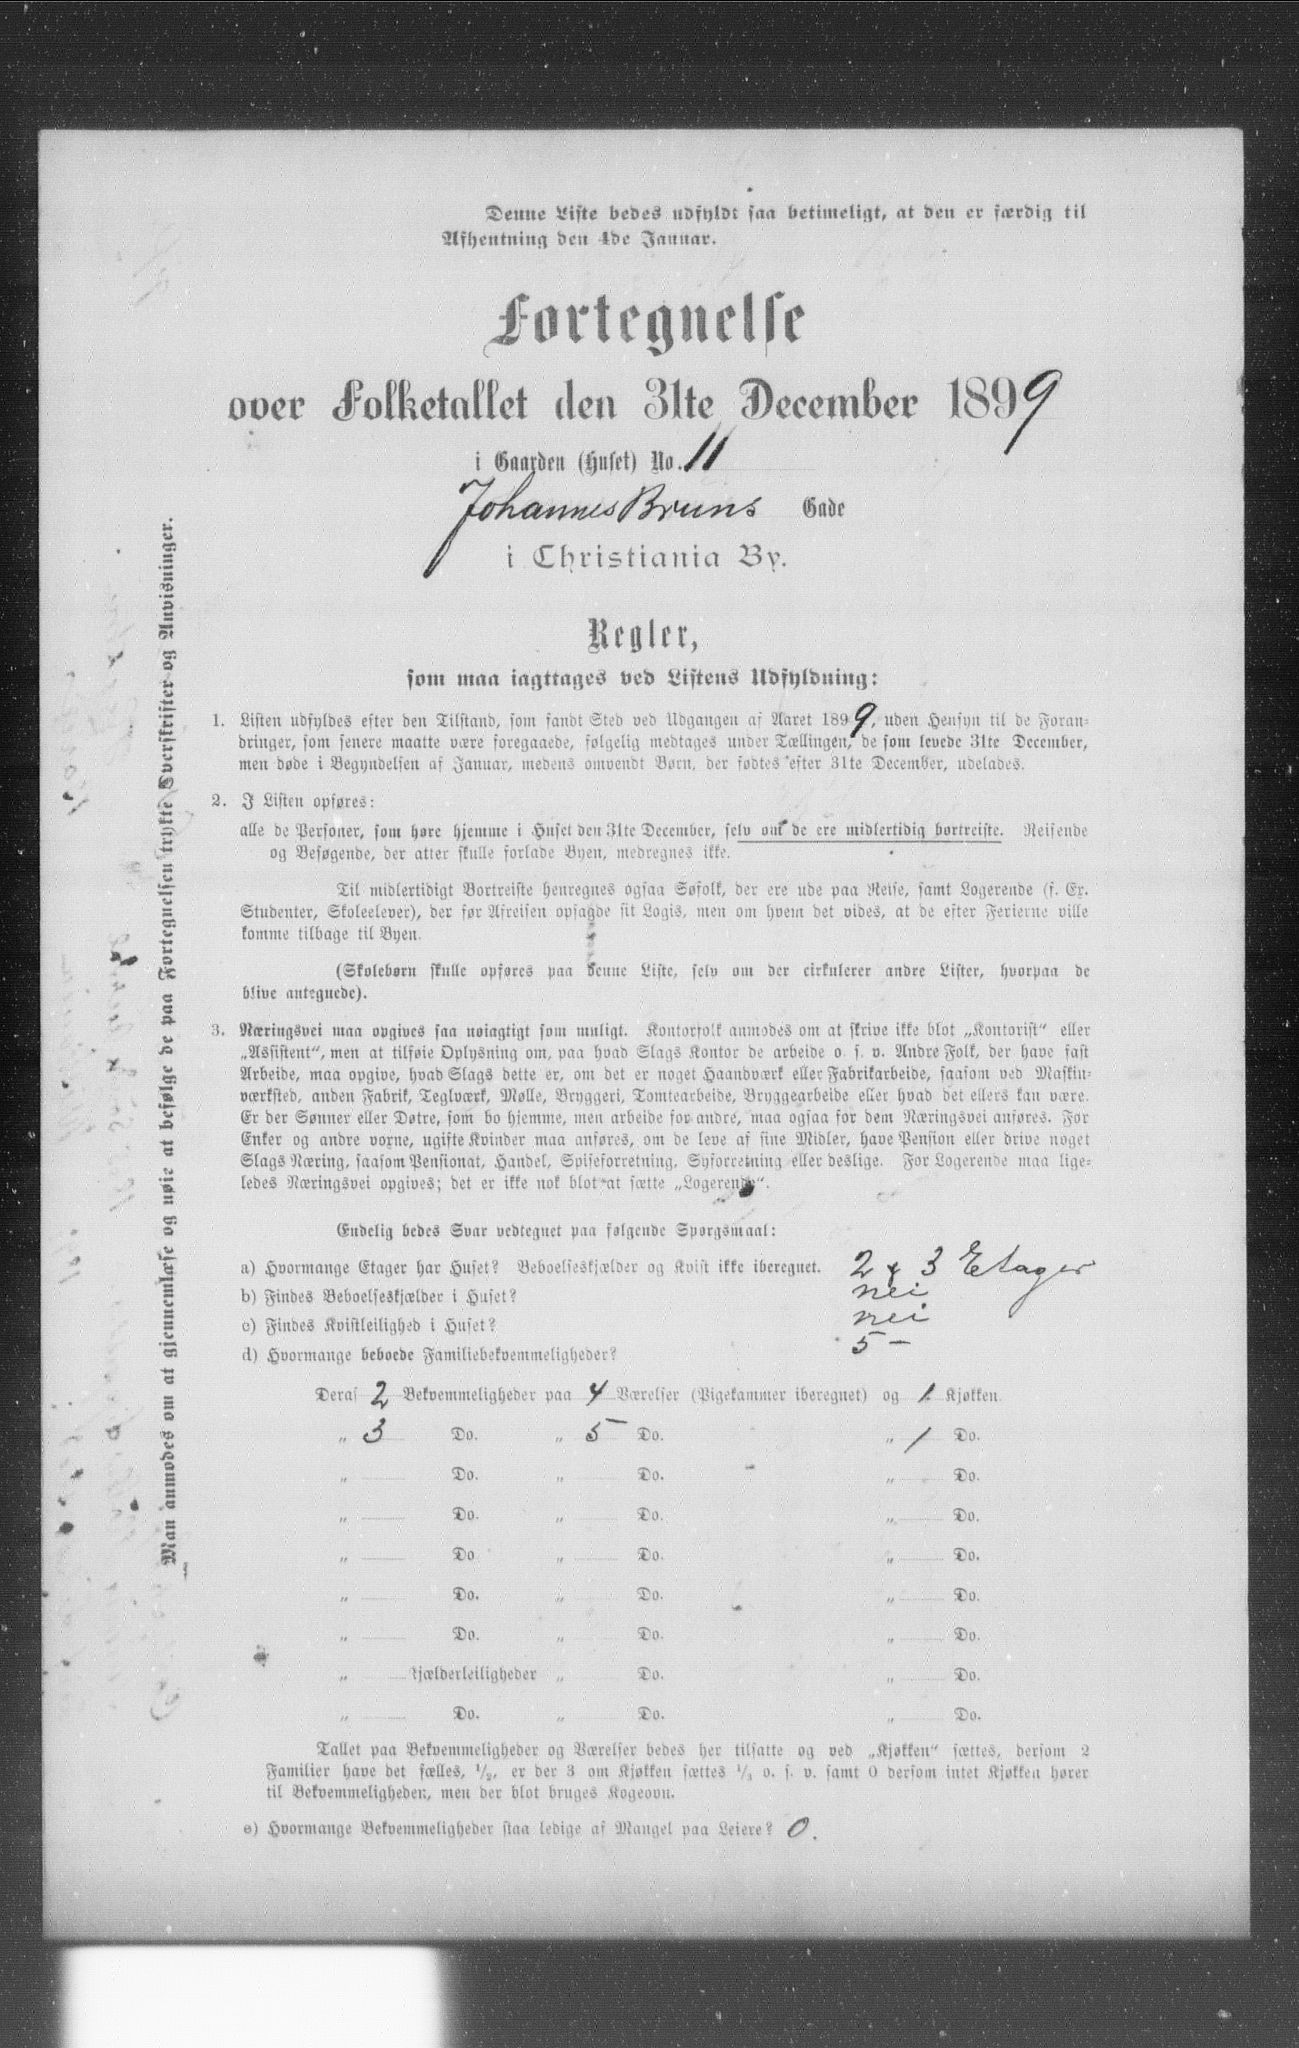 Denne Liste bedes udfyldt saa betimeligt, at den er færdig til
Afhentning den 4de Januar.
Fortegnelse
over Folketallet den 31te December 1899
i Gaarden (Huset) No. 11
Johannes Bruns Gade
i Christiania By.
Regler,
som maa iagttages ved Listens Udfyldning:
1. Listen udfyldes efter den Tilstand, som fandt Sted ved Udgangen af Aaret 1899, uden Hensyn til de Foran-
dringer, som senere maatte være foregaaede, følgelig medtages under Tællingen, de som levede 31te December,
men døde i Begyndelsen af Januar, medens omvendt Børn, der fødtes efter 31te December, udelades.
2. I Listen opføres:
alle de Personer, som høre hjemme i Huset den 31te December, selv om de ere midlertidig bortreiste. Reisende
og Besøgende, der atter skulle forlade Byen, medregnes ikke.
Til midlertidigt Bortreiste henregnes ogsaa Søfolk, der ere ude paa Reise, samt Logerende (f. Ex.
Studenter, Skoleelever), der før Afreisen opsagde sit Logis, men om hvem det vides, at de efter Ferierne ville
komme tilbage til Byen.
(Skolebørn skulle opføres paa denne Liste, selv om der cirkulerer andre Lister, hvorpaa de
blive antegnede).
3. Næringsvei maa opgives saa nøiagtigt som muligt. Kontorfolk anmodes om at skrive ikke blot „Kontorist“ eller
„Assistent“, men at tilføie Oplysning om, paa hvad Slags Kontor de arbeide o. s. v. Andre Folk, der have fast
Arbeide, maa opgive, hvad Slags dette er, om det er noget Haandværk eller Fabrikarbeide, saasom ved Maskin-
værksted, anden Fabrik, Teglværk, Mølle, Bryggeri, Tomtearbeide, Bryggearbeide eller hvad det ellers kan være.
Er der Sønner eller Døtre, som bo hjemme, men arbeide for andre, maa ogsaa for dem Næringsvei anføres. For
Enker og andre voxne, ugifte Kvinder maa anføres, om de leve af sine Midler, have Pension eller drive noget
Slags Næring, saasom Pensionat, Handel, Spiseforretning, Syforretning eller deslige. For Logerende maa lige-
ledes Næringsvei opgives; det er ikke nok blot at sætte „Logerende“.
Endelig bedes Svar vedtegnet paa følgende Spørgsmaal:
a) Hvormange Etager har Huset? Beboelseskjælder og Kvist ikke iberegnet. 2 & 3 Etager
b) Findes Beboelseskjælder i Huset? nei
c) Findes Kvistleilighed i Huset? nei
d) Hvormange beboede Familiebekvemmeligheder? 5 –
Deraf 2 Bekvemmeligheder paa 4 Værelser (Pigekammer iberegnet) og 1 Kjøkken.
„ 3 Do. „ 5 Do. „ 1 Do.
„ Do. „ Do. „ Do.
„ Do. „ Do. „ Do.
„ Do „ Do. „ Do.
„ Do. „ Do. „ Do.
„ Do. „ Do. „ Do.
„ Kjælderleiligheder „ Do. „ Do.
„ Do. „ Do. „ Do.
Tallet paa Bekvemmeligheder og Værelser bedes her tilsatte og ved „Kjøkken“ sættes, dersom 2
Familier have det fælles, 1/2, er der 3 om Kjøkken sættes 1/3 o. s. v. samt 0 dersom intet Kjøkken hører
til Bekvemmeligheden, men der blot bruges Kogeovn.
e) Hvormange Bekvemmeligheder staa ledige af Mangel paa Leiere? 0.
Man anmodes om at gjennemlæse og nøie at befølge de paa Fortegnelsen trykte Overskrifter og Anvisninger.